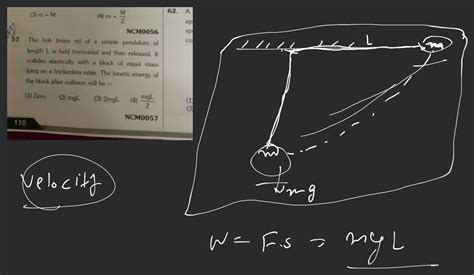 (3) m = M (4) m = M/2
NCM0056
57 The bob (mass m) of a simple pendulum of
length L is held horizontal and then released. It
collides elastically with a block of equal mass
lying on a frictionless table. The kinetic energy of
the block after collision will be :-
(1) Zero (2) mgL (3) 2mgL (4) mgL/2
NCM0057
110
62. A
L
m
m
mg
velocity
W = F.S = mgL